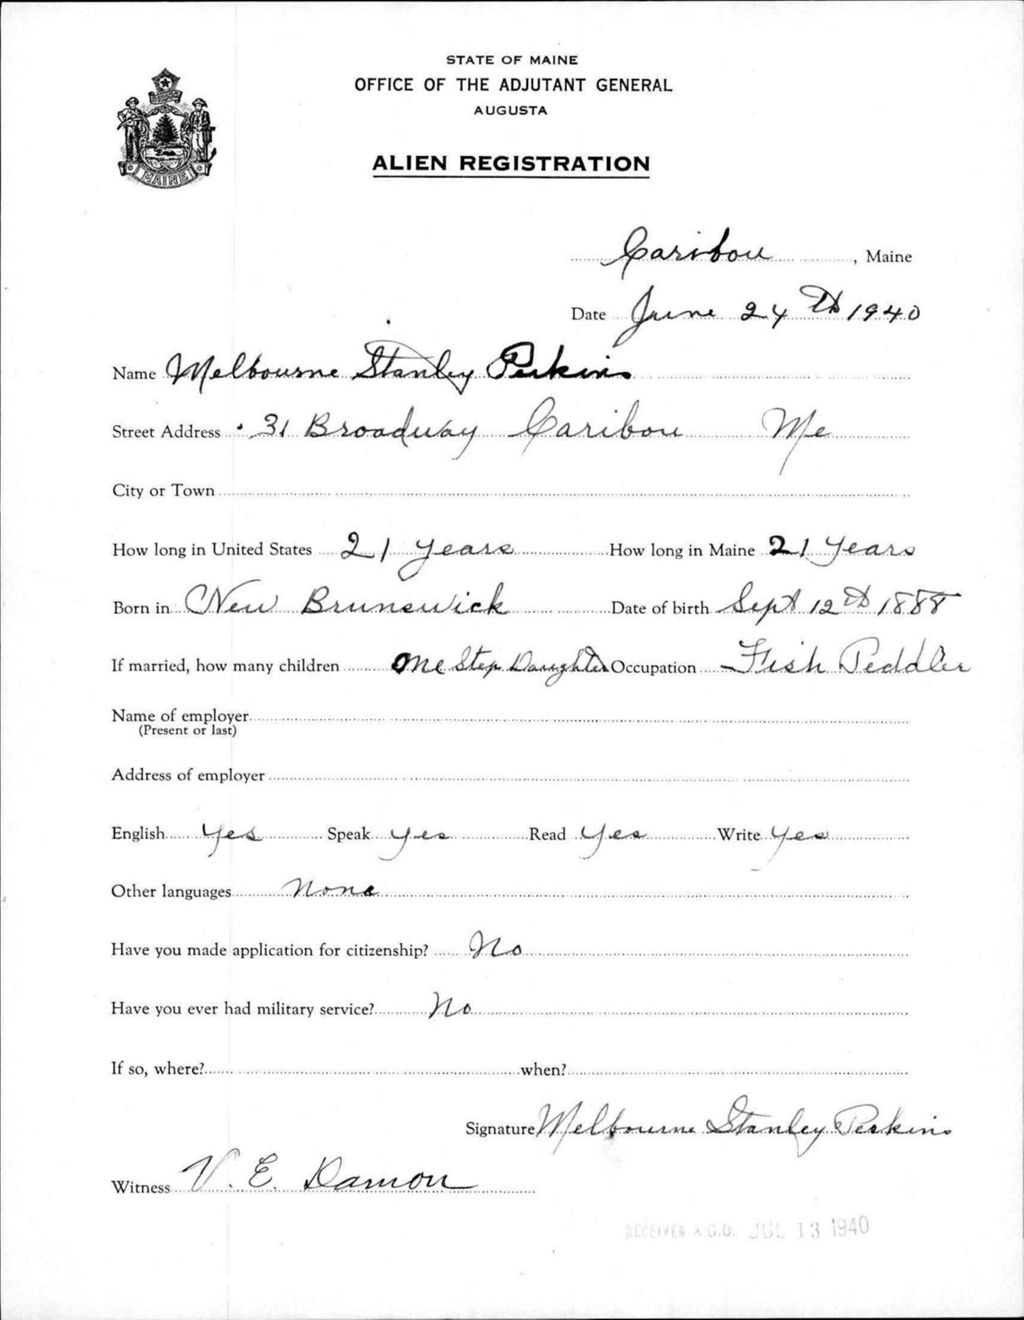 STATE OF MAINE
OFFICE OF THE ADJUTANT GENERAL
AUGUSTA
MAINE
ALIEN REGISTRATION
Caribou, Maine
Date June 24th 1940
Name Melbourne Stanley Perkins
Street Address 31 Broadway Caribou Me
City or Town
How long in United States 21 years How long in Maine 21 years
Born in New Brunswick Date of birth Sept 12th 1888
If married, how many children One Step Daughter Occupation Fish Peddler
Name of employer
(Present or last)
Address of employer
English Yes Speak yes Read yes Write yes
Other languages None
Have you made application for citizenship? No
Have you ever had military service? No
If so, where? when?
Signature Melbourne Stanley Perkins
Witness V. E. Damon
RECEIVED A.G.O. JUL 13 1940